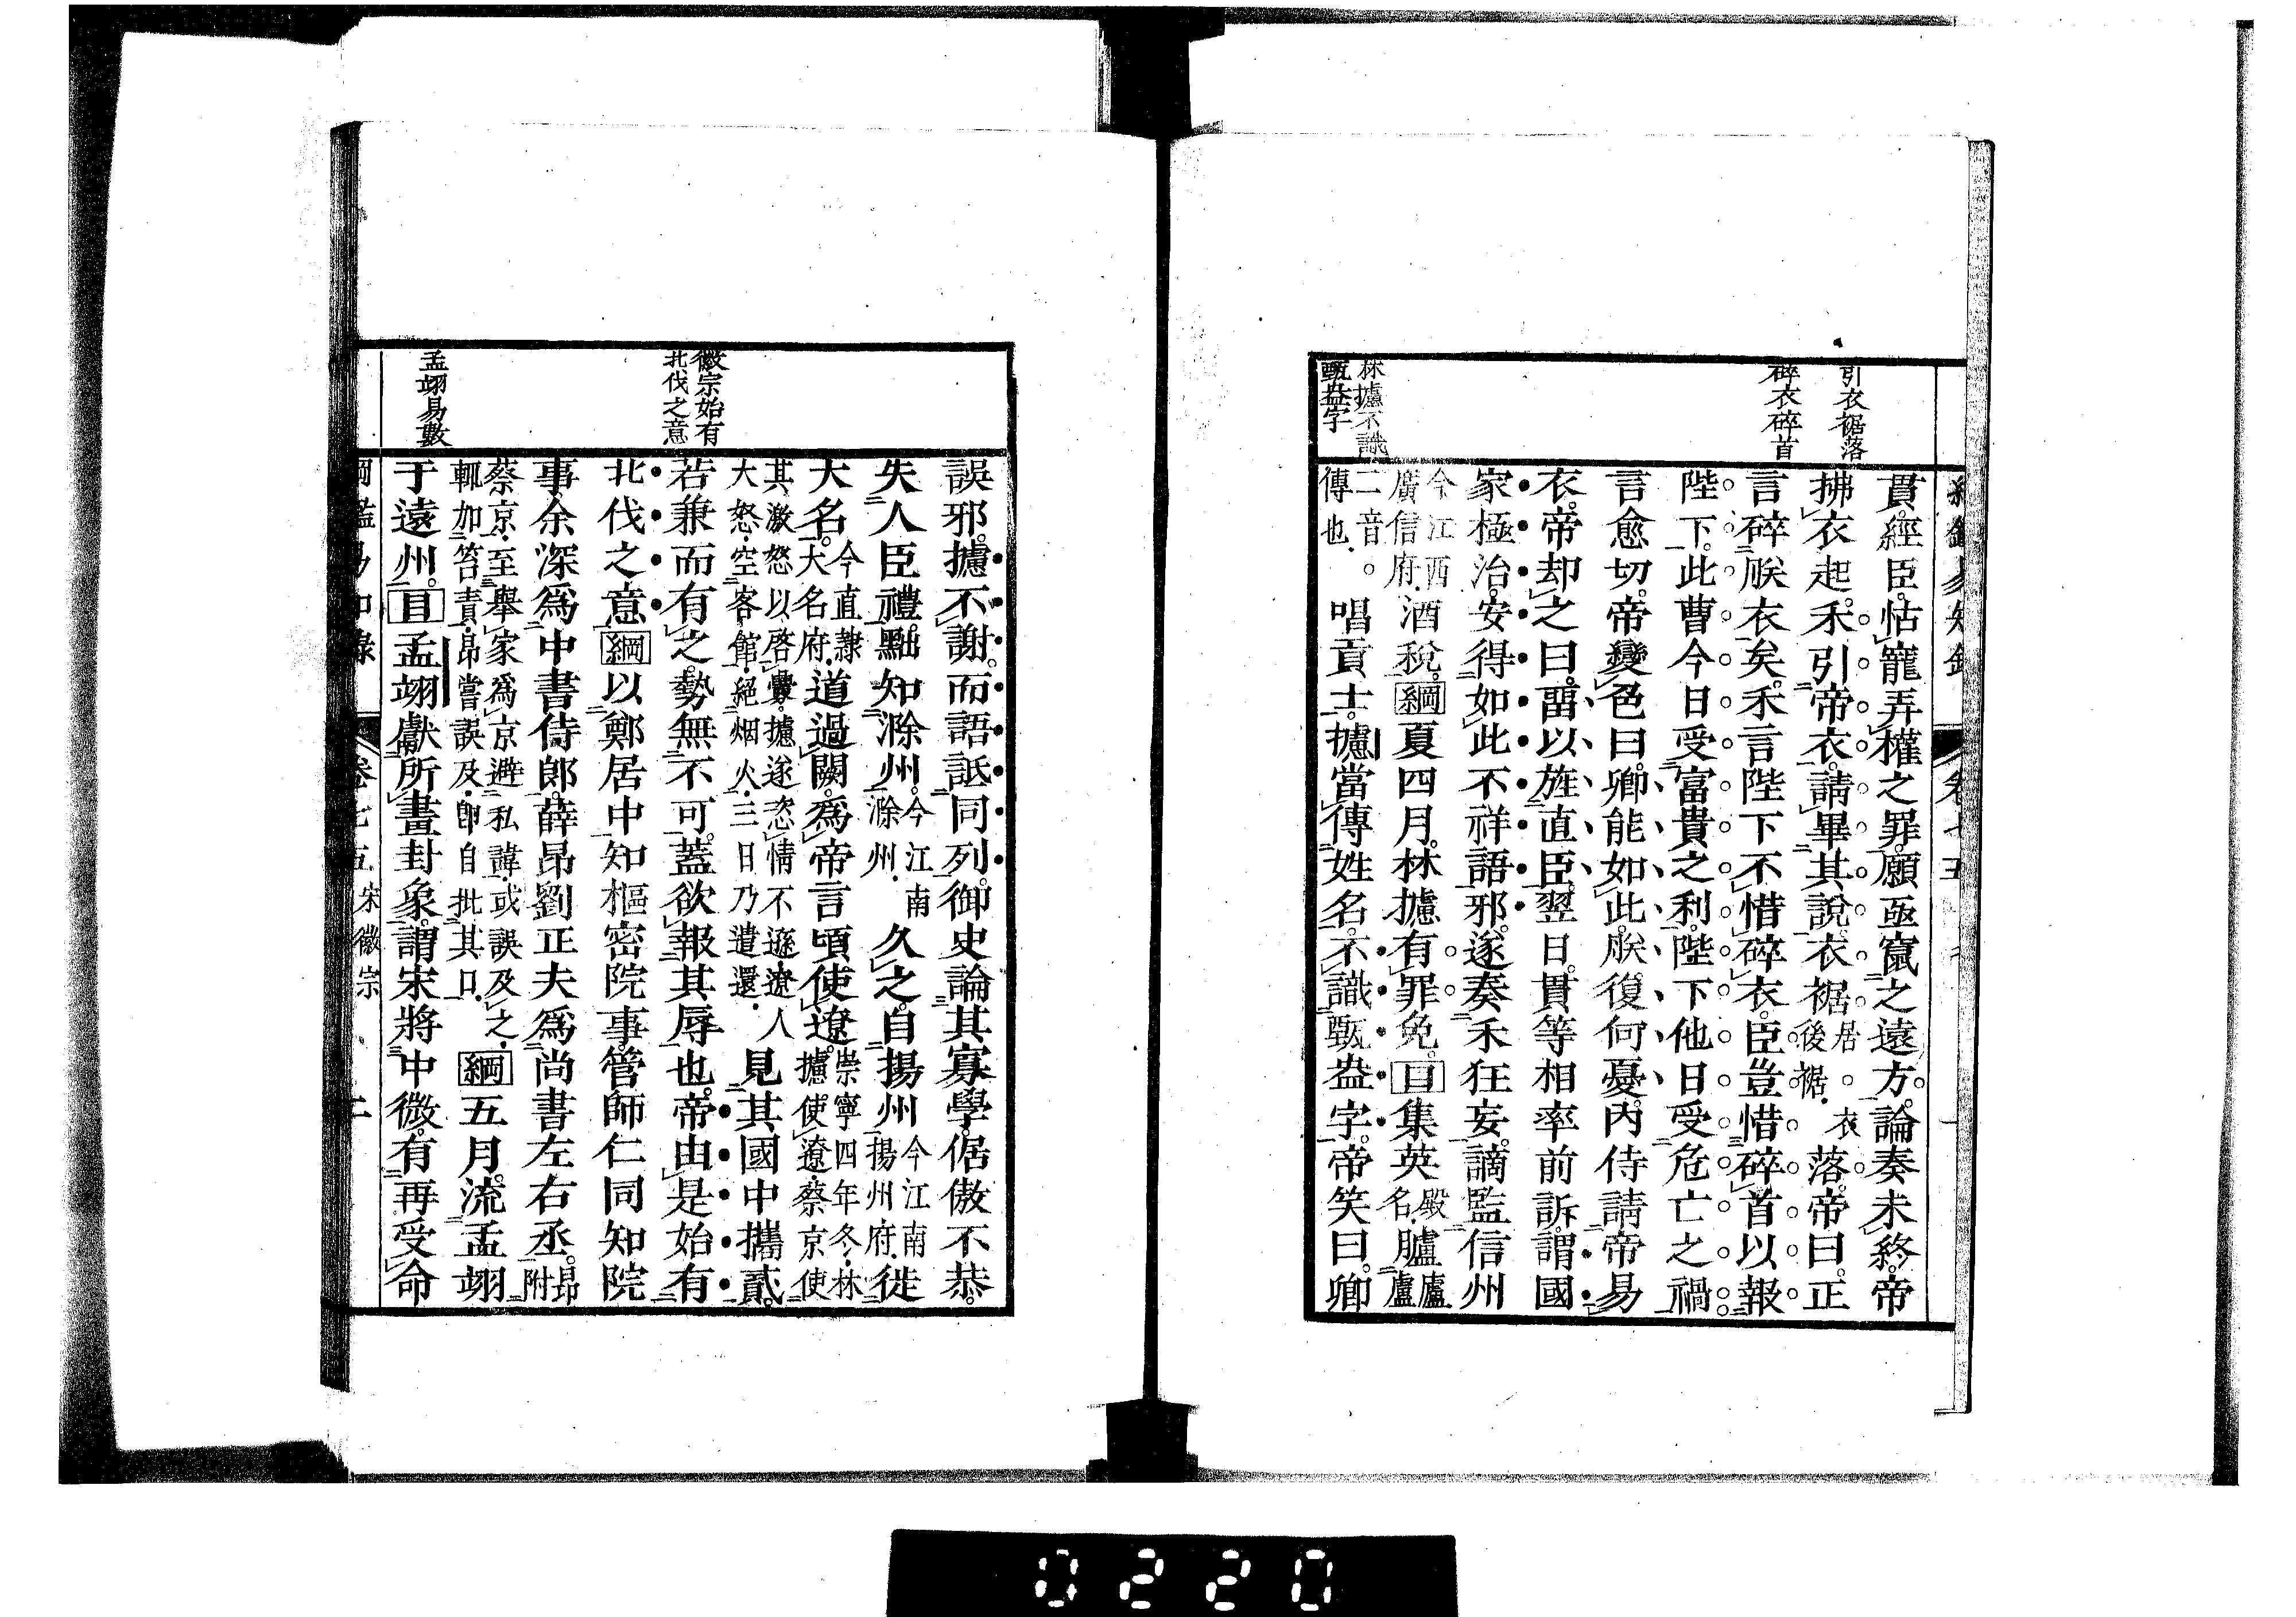 引衣裾落
碎衣碎首
林攄不識
甄盎字
貫經臣怙寵弄權之罪願亟竄之遠方論奏未終帝
拂衣起禾引帝衣請畢其說衣裾居。衣後裾落帝曰正
言碎朕衣矣禾言陛下不惜碎衣臣豈惜碎首以報
陛下此曹今日受富貴之利陛下他日受危亡之禍
言愈切帝變色曰卿能如此朕復何憂內侍請帝易
衣帝却之曰留以旌直臣翌日貫等相率前訴謂國
家極治安得如此不祥語邪遂奏禾狂妄謫監信州
今江西廣信府酒稅綱夏四月林攄有罪免目集英殿名臚廬
二音。傳也唱貢士攄當傳姓名不識甄盎字帝笑曰卿
徽宗始有
北伐之意
孟翊易數
誤邪攄不謝而語詆同列御史論其寡學倨傲不恭
失人臣禮黜知滁州今江南滁州久之自揚州今江南揚州府徙
大名今直隷大名府道過闕爲帝言頃使遼崇寧四年冬林攄使遼蔡京使
其激怒以啓釁攄遂恣情不遜遼人大怒空客館絕烟火三日乃遣還見其國中攜貳
若兼而有之勢無不可蓋欲報其辱也帝由是始有
北伐之意綱以鄭居中知樞密院事管師仁同知院
事余深爲中書侍郎薛昂劉正夫爲尚書左右丞昂附
蔡京至舉家爲京避私諱或誤及之輒加笞責昂嘗誤及卽自批其口綱五月流孟翊
于遠州目孟翊獻所畫封象謂宋將中微有再受命
卷七五宋徽宗 二
0220